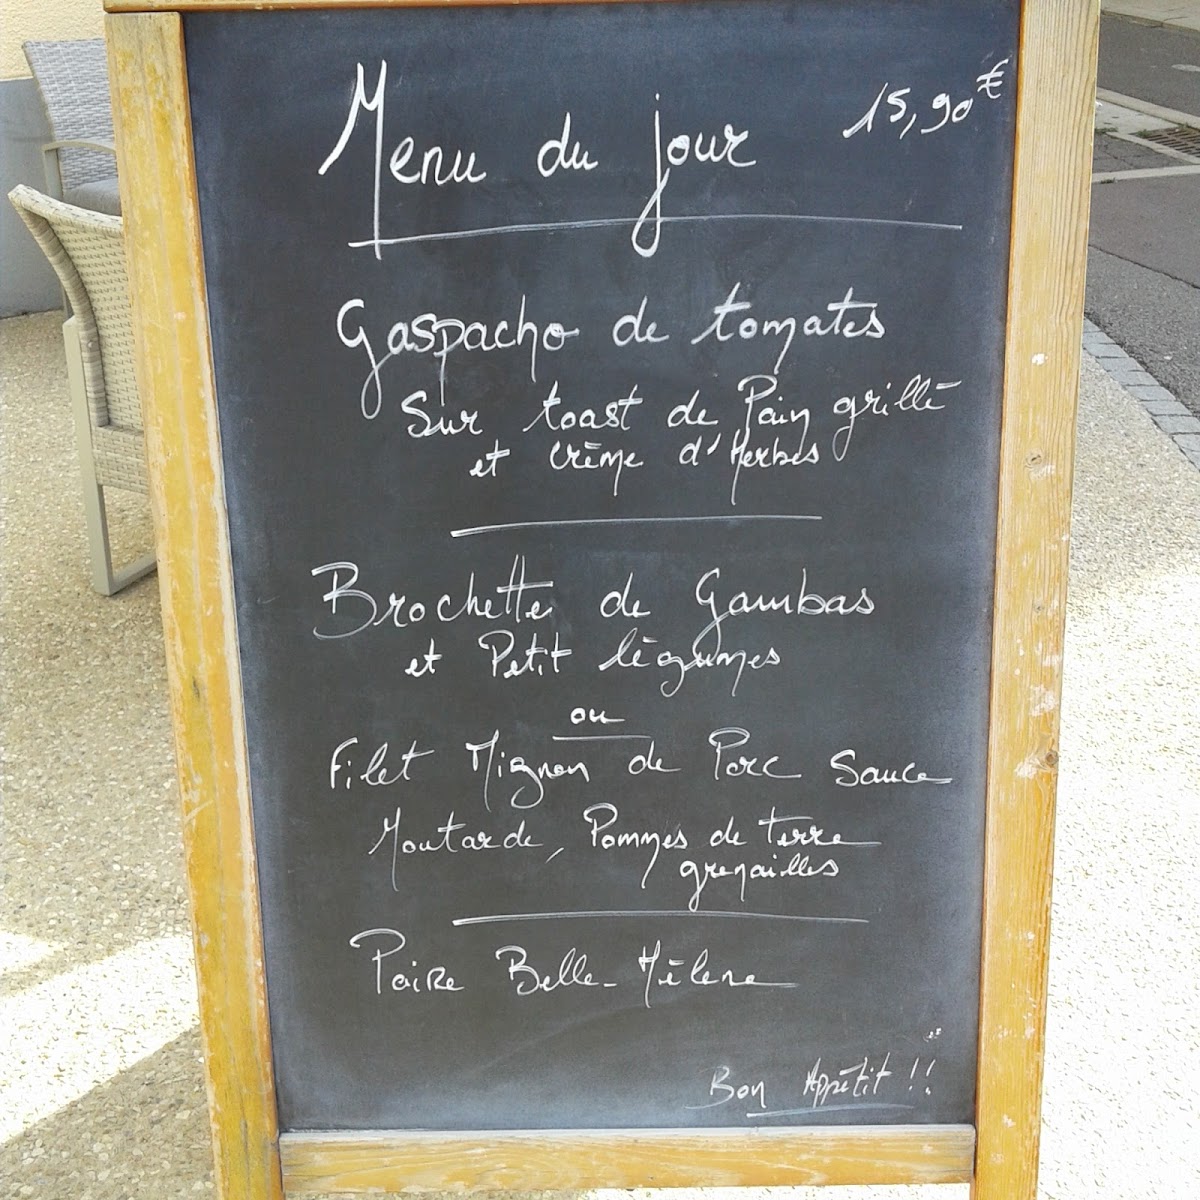 Menu du jour 15,90€
Gaspacho de tomates
Sur toast de Pain grillé
et crème d'Herbes
Brochette de Gambas
et Petit légumes
ou
Filet Mignon de Porc Sauce
Moutarde, Pommes de terre
grenailles
Poire Belle-Hélène
Bon Appétit !!